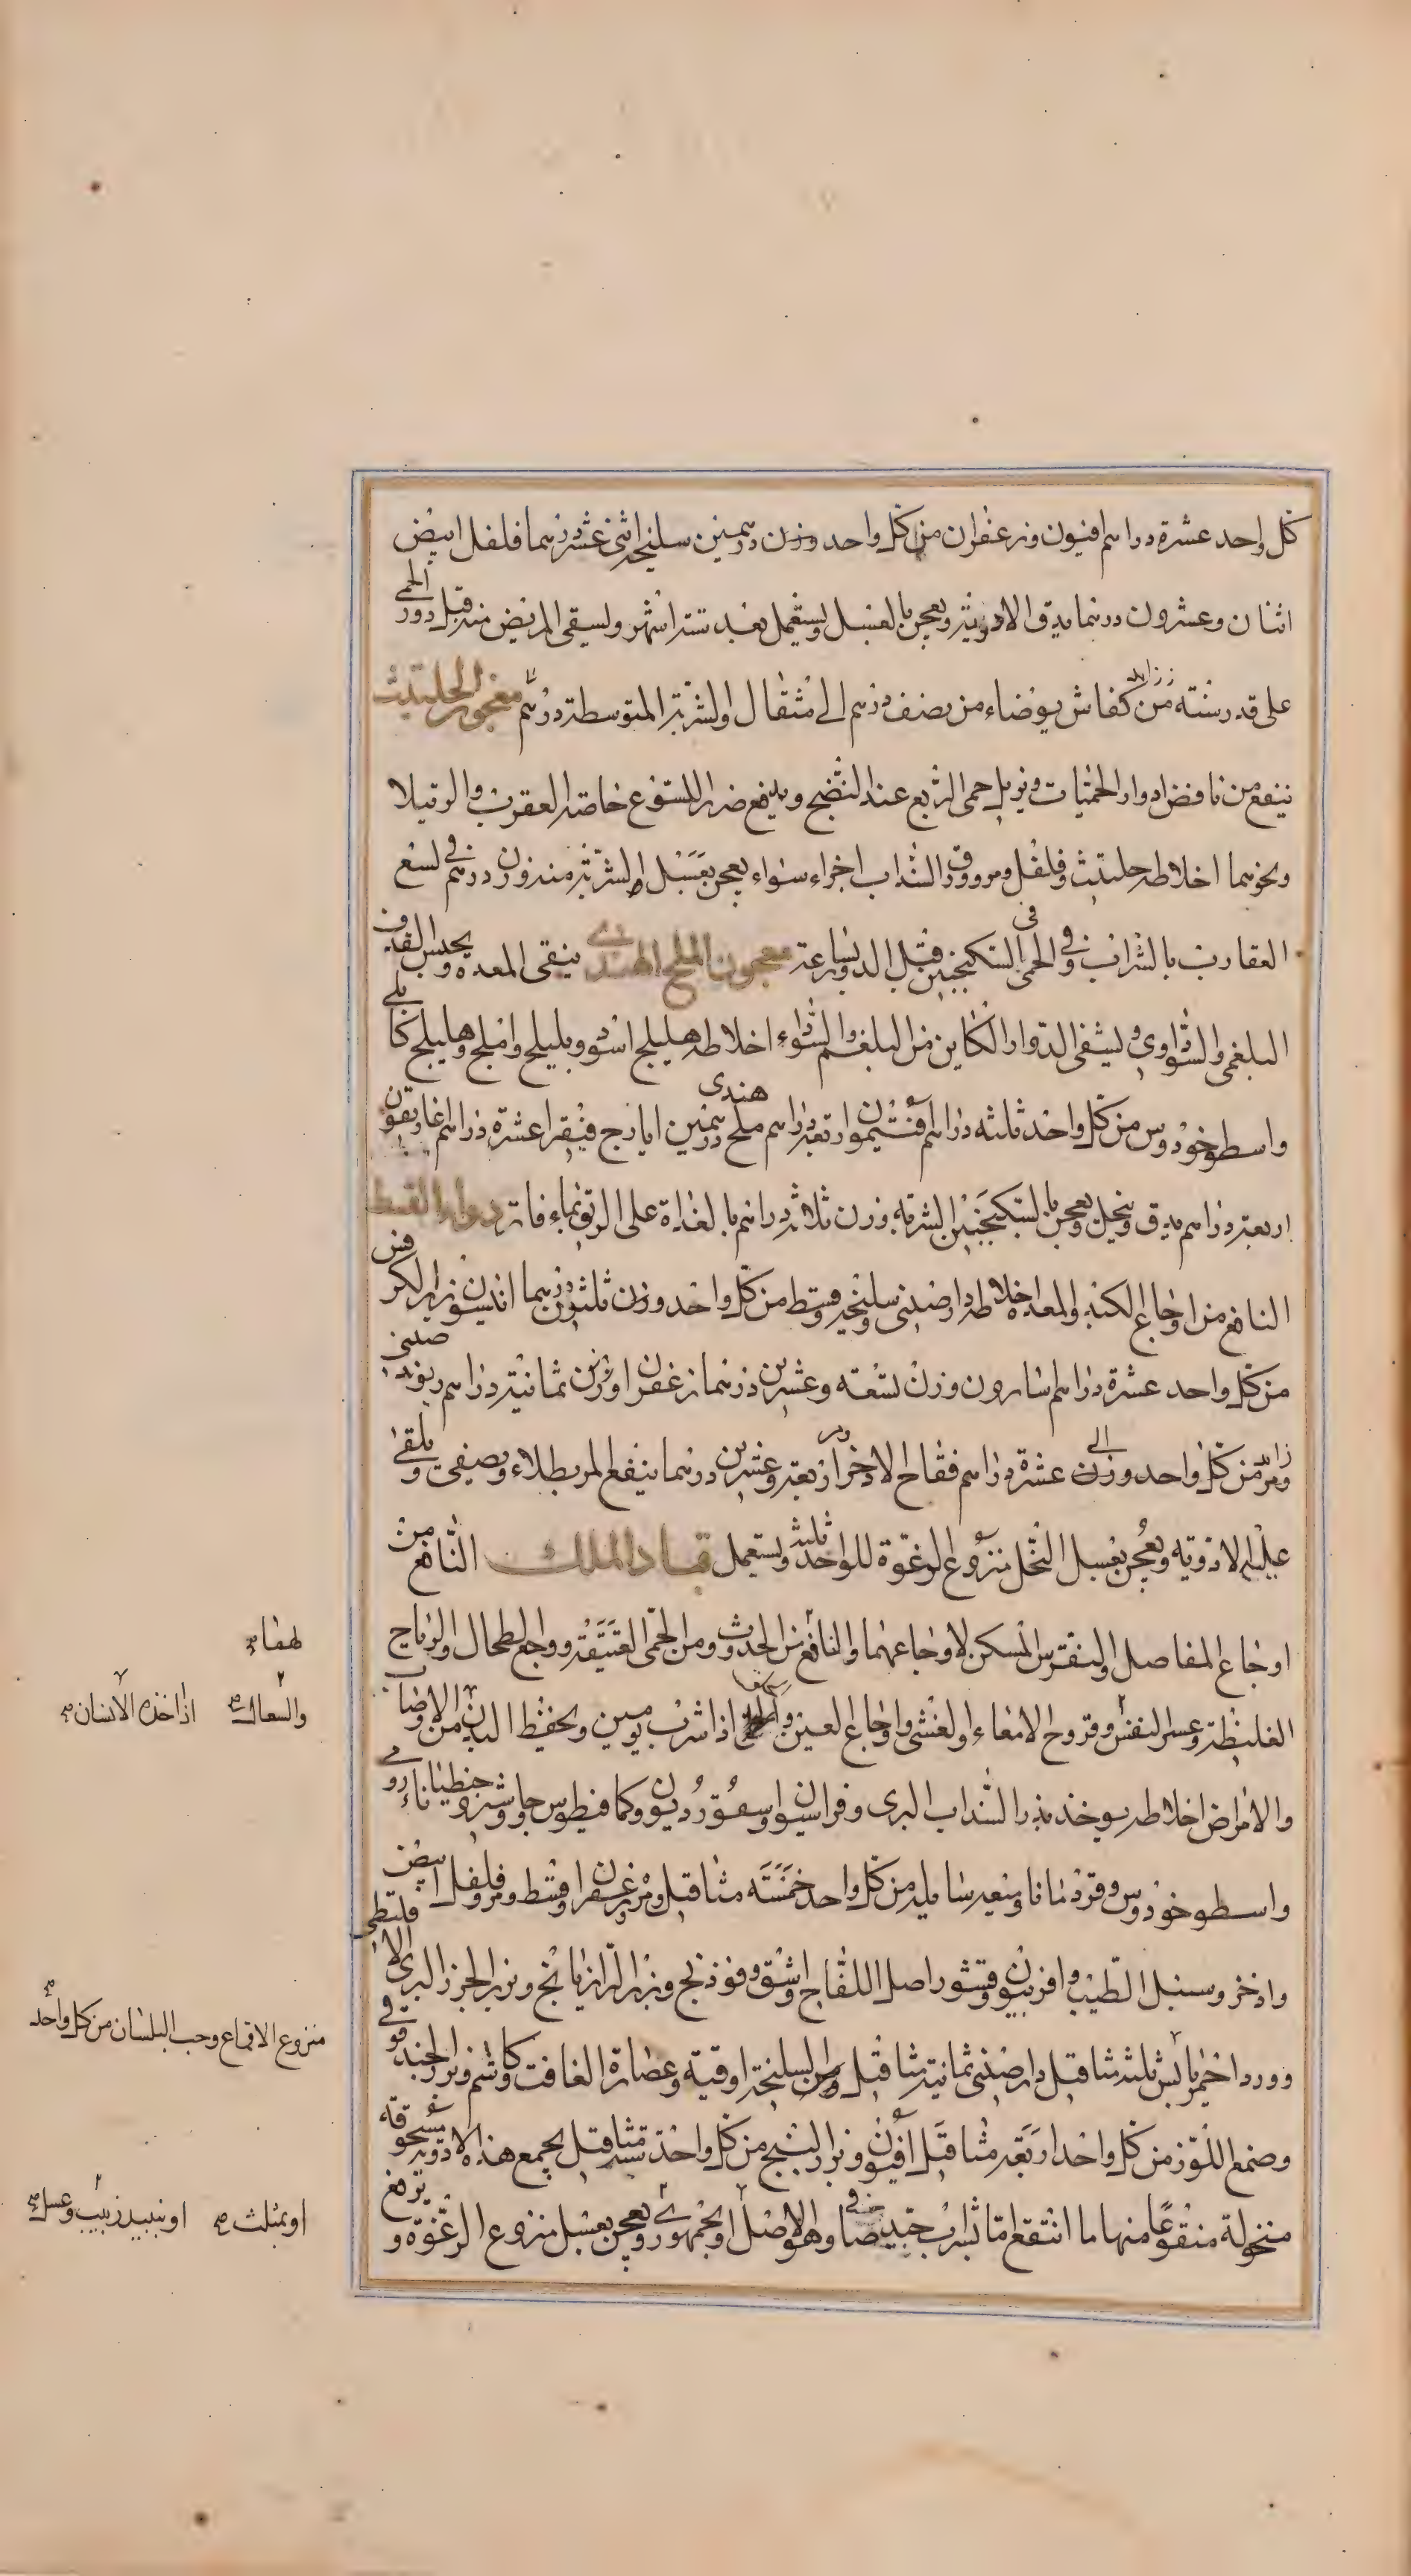 كل واحد عشرة دراهم افيون وزعفران من كل واحد وزن درهمين سليخة اثنى عشر درهما فلفل ابيض
اثنان وعشرون درهما يدق الادوية ويعجن بالعسل ويستعمل بعد ستة اشهر ويسقى المريض منه قبل دور الحمى
على قدر سنه من نصف درهم الى مثقال والشربة المتوسطة درهم معجون الحلتيت
ينفع من نافض ادوار الحميات ويزيل حمى الربع عند النضج ويدفع ضرر اللسوع خاصة العقرب والرتيلا
ونحوهما اخلاطه حلتيت وفلفل ومر وورق السداب اجزاء سواء يعجن بعسل الشربة منه وزن درهم في لسع
العقارب بالشراب وفي الحمى السكنجبين قبل الدور بساعة معجون الملح الهندي ينقى المعده ويحبس القذف
البلغمى والسوداوى ويشفى الدوار الكاين من البلغم والسوداء اخلاطه هليلج اسود وبليلج واملج وهليلج كابلي
واسطوخودوس من كل واحد ثلثه دراهم افتيمون اربعة دراهم ملح هندى درهمين ايارج فيقرا عشرة دراهم غاريقون
اربعة دراهم يدق وينخل ويعجن بالسكنجبين الشربة وزن ثلاثة دراهم بالغداة على الريق بماء فاتر دواء القسط
النافع من اوجاع الكبد والمعدة اخلاطه دارصيني وسليخه وقسط من كل واحد وزن ثلثون درهما انيسون وبزر الكرفس
من كل واحد عشرة دراهم اسارون وزن تسعه وعشرين درهما زعفران وزن ثمانية دراهم ريوند صيني
ومر من كل واحد وزن عشرة دراهم فقاح الاذخر اربعة وعشرين درهما ينقع المر بطلاء ويصفى ويلقى
عليه الادويه ويعجن بعسل النحل منزوع الرغوة للواحد ثلثة ويستعمل قباد الملك النافع من
اوجاع المفاصل والنقرس المسكن لاوجاعهما والنافع من الحدوث ومن الحمى العتيقة ووجع الطحال والرياح
الغليظة وعسر النفس وقروح الامعاء والغشى واوجاع العين اذا شرب يومين ويحفظ البدن من الاوصاب
والامراض اخلاطه يوخذ بذر السداب البرى وفراسيون واسقورديون وكمافيطوس وجاوشير وجنطيانا رومى
واسطوخودوس وقردمانا وميعه سايله من كل واحد خمسة مثاقيل ومر وزعفران وقسط ومر وفلفل ابيض
واذخر وسنبل الطيب وافربيون وقشور اصل اللفاح واشق وفوذنج وبزر الرازيانج وبزر الجزر البرى الاقليطى
وورد احمر يابس ثلثه مثاقيل دارصيني ثمانية مثاقيل ومن السليخة اوقية وعصارة الغافت وكاشم وبزر الحندقوقى
وصمغ اللوز من كل واحد اربعة مثاقيل افيون وبزر البنج من كل واحد ستة مثاقيل يجمع هذه الادوية مسحوقة
منخولة منقوعا منها ما انتقع بشراب جيد وهو الاصل او بجمهورى ويعجن بعسل منزوع الرغوة ويرفع
والسعال اذا اخذه الانسان
منزوع الاقماع وحب البلسان من كل واحد
او بمثلث او بنبيذ زبيب وعسل